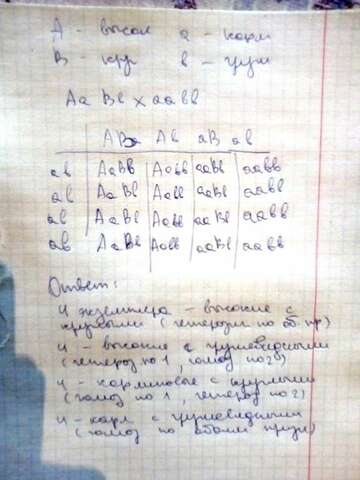 А - высок а - карл
В - кру в - груш
Аа Вв х аавв
АВ Ав аВ ав
ав АаВв Аавв ааВв аавв
ав АаВв Аавв ааВв аавв
ав АаВв Аавв ааВв аавв
ав АаВв Аавв ааВв аавв
Ответ:
4 экземпляра - высокие с
круглыми (гетерозиг по об. пр)
4 - высокие с грушевидными
(гетероз по 1, гомоз по 2)
4 - карликовые с круглыми
(гомоз по 1, гетероз по 2)
4 - карл с грушевидными
(гомоз по обоим призн)